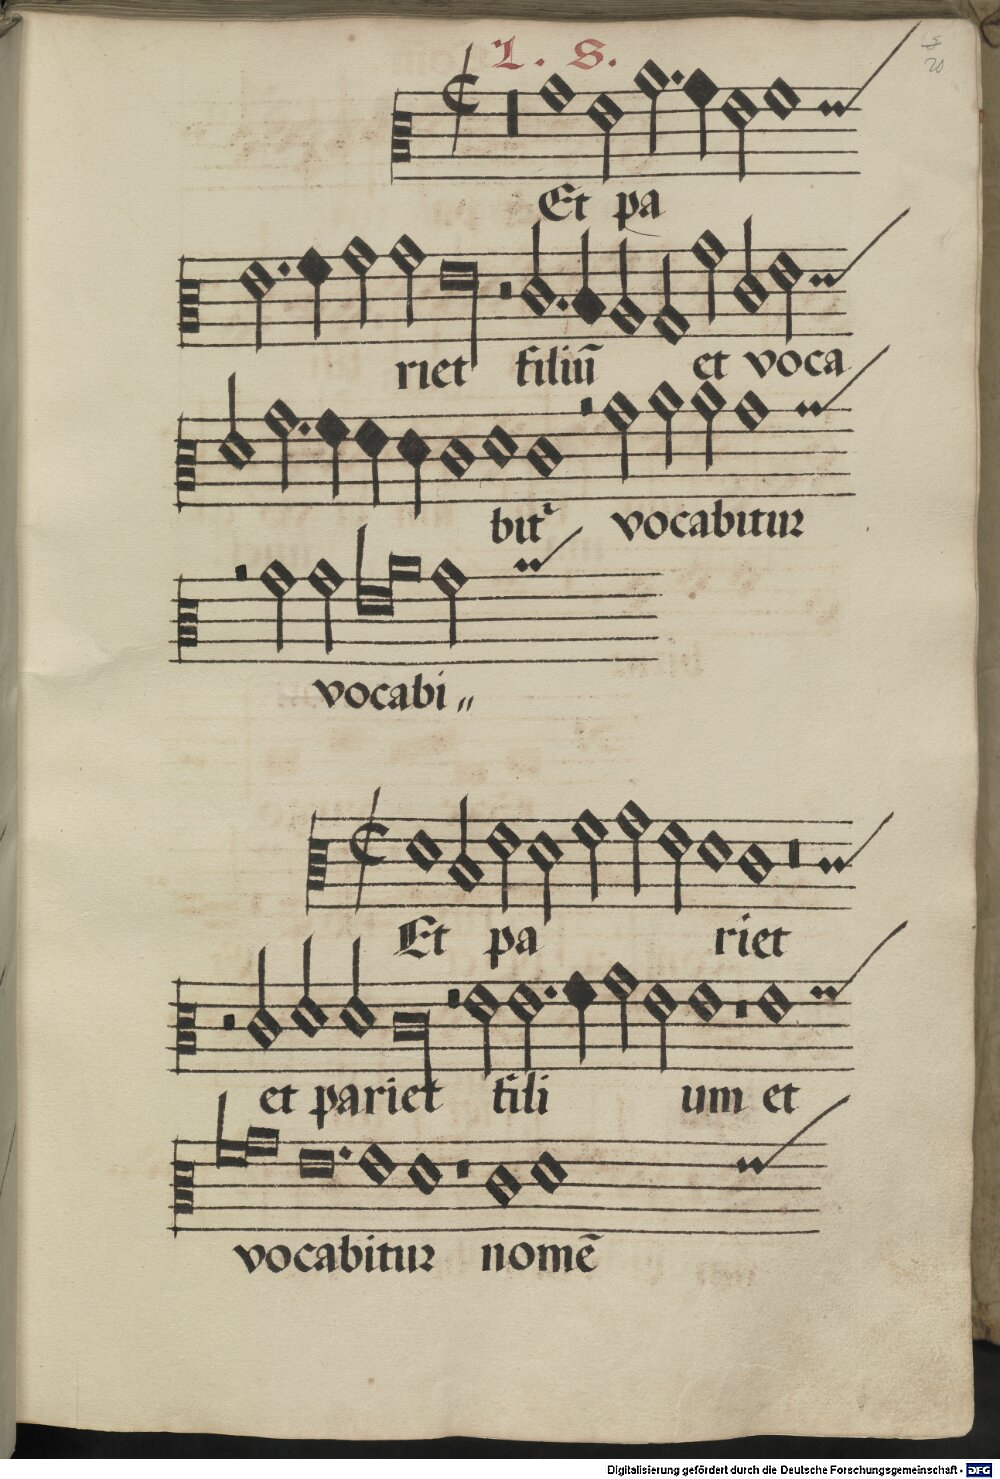 L. S.
20
Et pa
riet filiū et voca
bit᷑ vocabitur
vocabi〃
Et pa riet
et pariet fili um et
vocabitur nomē
Digitalisierung gefördert durch die Deutsche Forschungsgemeinschaft - DFG